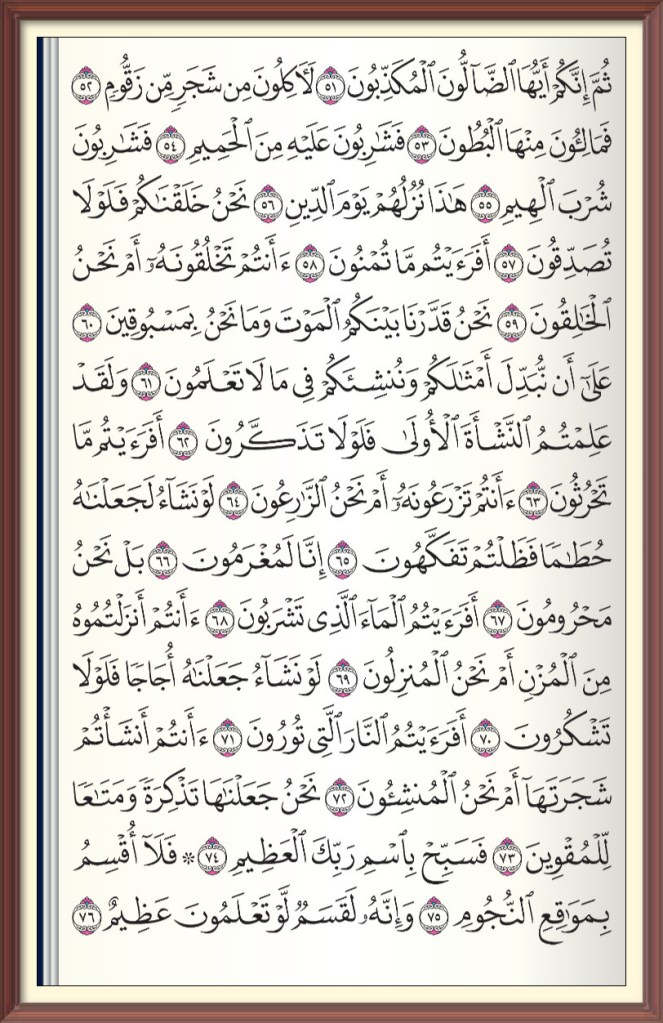 ثُمَّ إِنَّكُمۡ أَيُّهَا ٱلضَّآلُّونَ ٱلۡمُكَذِّبُونَ ٥١ لَأٓكِلُونَ مِن شَجَرٖ مِّن زَقُّومٖ ٥٢
فَمَالِـُٔونَ مِنۡهَا ٱلۡبُطُونَ ٥٣ فَشَٰرِبُونَ عَلَيۡهِ مِنَ ٱلۡحَمِيمِ ٥٤ فَشَٰرِبُونَ
شُرۡبَ ٱلۡهِيمِ ٥٥ هَٰذَا نُزُلُهُمۡ يَوۡمَ ٱلدِّينِ ٥٦ نَحۡنُ خَلَقۡنَٰكُمۡ فَلَوۡلَا
تُصَدِّقُونَ ٥٧ أَفَرَءَيۡتُم مَّا تُمۡنُونَ ٥٨ ءَأَنتُمۡ تَخۡلُقُونَهُۥٓ أَمۡ نَحۡنُ
ٱلۡخَٰلِقُونَ ٥٩ نَحۡنُ قَدَّرۡنَا بَيۡنَكُمُ ٱلۡمَوۡتَ وَمَا نَحۡنُ بِمَسۡبُوقِينَ ٦٠
عَلَىٰٓ أَن نُّبَدِّلَ أَمۡثَٰلَكُمۡ وَنُنشِئَكُمۡ فِي مَا لَا تَعۡلَمُونَ ٦١ وَلَقَدۡ
عَلِمۡتُمُ ٱلنَّشۡأَةَ ٱلۡأُولَىٰ فَلَوۡلَا تَذَكَّرُونَ ٦٢ أَفَرَءَيۡتُم مَّا
تَحۡرُثُونَ ٦٣ ءَأَنتُمۡ تَزۡرَعُونَهُۥٓ أَمۡ نَحۡنُ ٱلزَّٰرِعُونَ ٦٤ لَوۡ نَشَآءُ لَجَعَلۡنَٰهُ
حُطَٰمٗا فَظَلۡتُمۡ تَفَكَّهُونَ ٦٥ إِنَّا لَمُغۡرَمُونَ ٦٦ بَلۡ نَحۡنُ
مَحۡرُومُونَ ٦٧ أَفَرَءَيۡتُمُ ٱلۡمَآءَ ٱلَّذِي تَشۡرَبُونَ ٦٨ ءَأَنتُمۡ أَنزَلۡتُمُوهُ
مِنَ ٱلۡمُزۡنِ أَمۡ نَحۡنُ ٱلۡمُنزِلُونَ ٦٩ لَوۡ نَشَآءُ جَعَلۡنَٰهُ أُجَاجٗا فَلَوۡلَا
تَشۡكُرُونَ ٧٠ أَفَرَءَيۡتُمُ ٱلنَّارَ ٱلَّتِي تُورُونَ ٧١ ءَأَنتُمۡ أَنشَأۡتُمۡ
شَجَرَتَهَآ أَمۡ نَحۡنُ ٱلۡمُنشِـُٔونَ ٧٢ نَحۡنُ جَعَلۡنَٰهَا تَذۡكِرَةٗ وَمَتَٰعٗا
لِّلۡمُقۡوِينَ ٧٣ فَسَبِّحۡ بِٱسۡمِ رَبِّكَ ٱلۡعَظِيمِ ٧٤ ۞ فَلَآ أُقۡسِمُ
بِمَوَٰقِعِ ٱلنُّجُومِ ٧٥ وَإِنَّهُۥ لَقَسَمٞ لَّوۡ تَعۡلَمُونَ عَظِيمٌ ٧٦